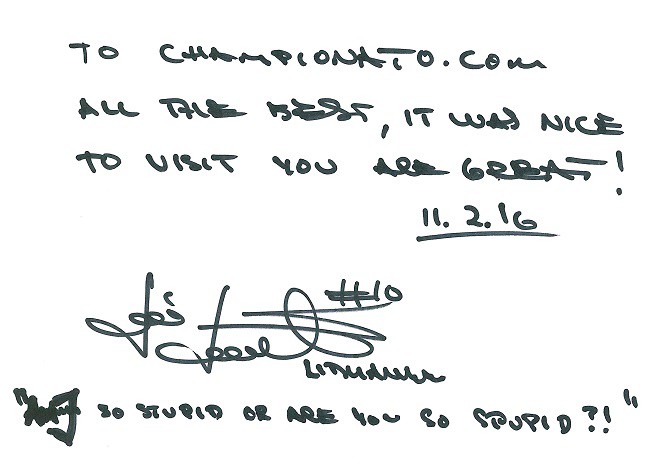 TO CHAMPIONATO.COM
ALL THE BEST, IT WAS NICE
TO VISIT YOU ARE GREAT!
11.2.16
#10
LITHUANIA
SO STUPID OR ARE YOU SO STUPID?!"